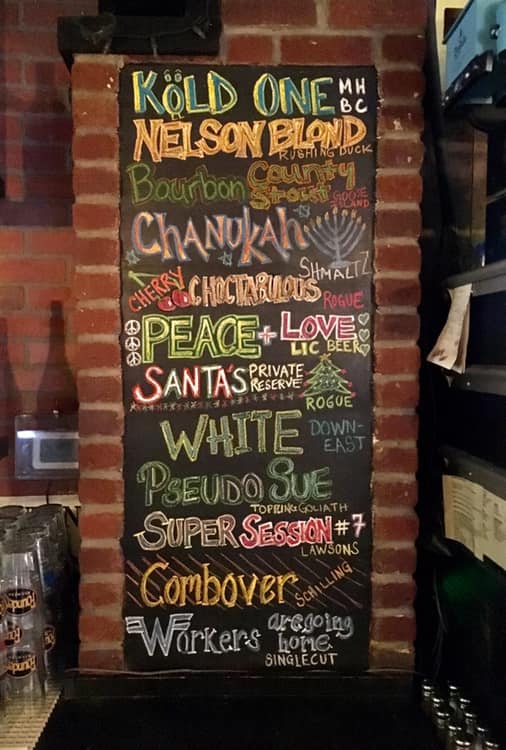 KÖLD ONE MH BC
NELSON BLOND
RUSHING DUCK
Bourbon County Stout GOOSE ISLAND
CHANUKAH SHMALTZ
CHERRY CHOCTABULOUS ROGUE
PEACE + LOVE
LIC BEER
SANTA'S PRIVATE RESERVE
ROGUE
WHITE DOWN-EAST
PSEUDO SUE
TOPPLING GOLIATH
SUPER SESSION #7
LAWSONS
COMBOVER SCHILLING
WORKERS are going home
SINGLECUT